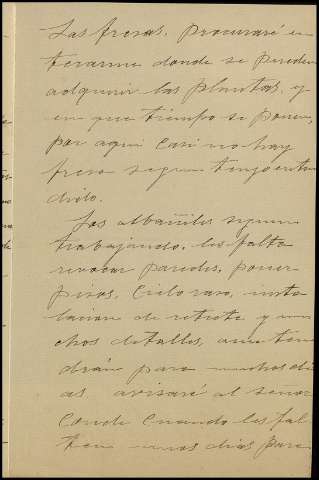 Las fresas, procuraré en
terarme donde se pueden
adquirir las plantas, y
en que tiempo se ponen,
por aqui casi no hay
fresa segun tengo enten
dido.
Los albañiles siguen
trabajando, les falta
revocar paredes, poner
pisos, cielo raso, insta
lacion de retrete y mu
chos detalles, aun ten
drán para muchos di
as, avisaré al señor
Conde cuando les fal
ten unos dias para